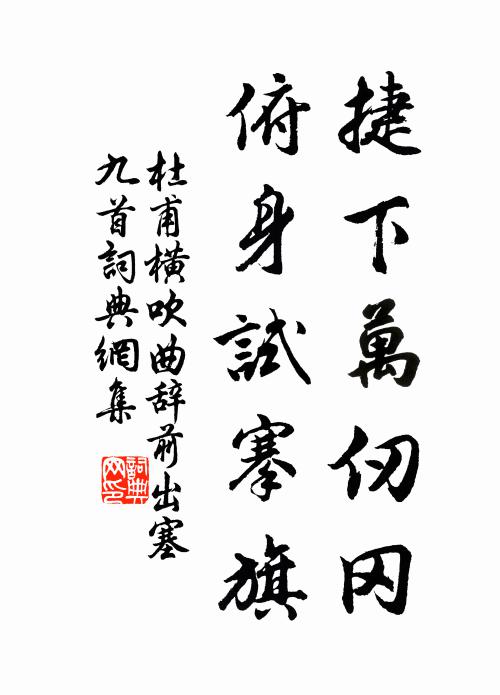 捷下萬仞冈
俯身試搴旗
杜甫橫吹曲辞前出塞
九首詞典網集
詞典
网印